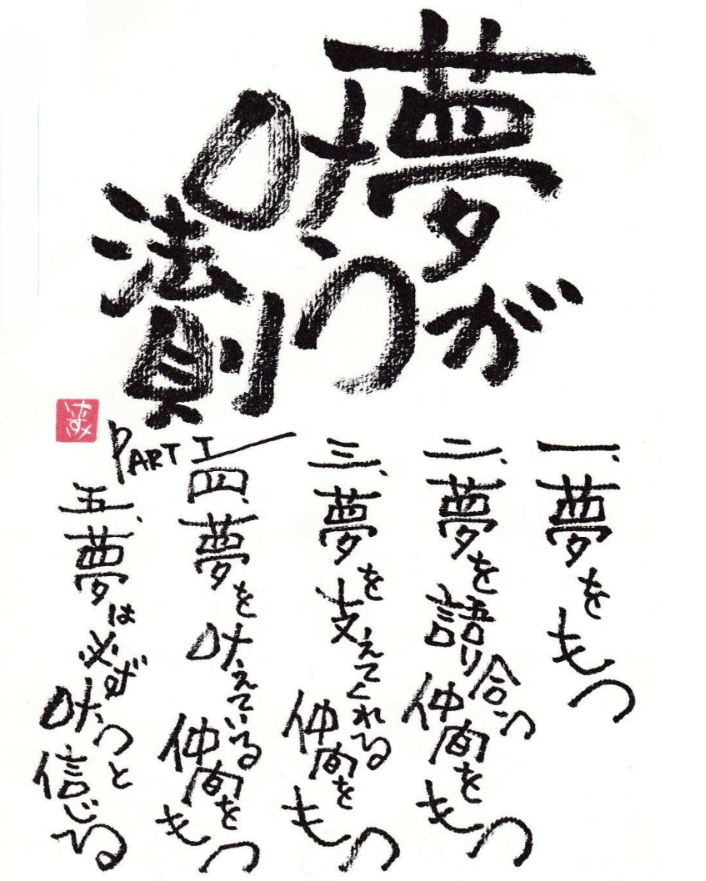 夢が
叶う
法則
PART I
一、夢をもつ
二、夢を語り合う仲間をもつ
三、夢を支えてくれる仲間をもつ
四、夢を叶えている仲間をもつ
五、夢は必ず叶うと信じる